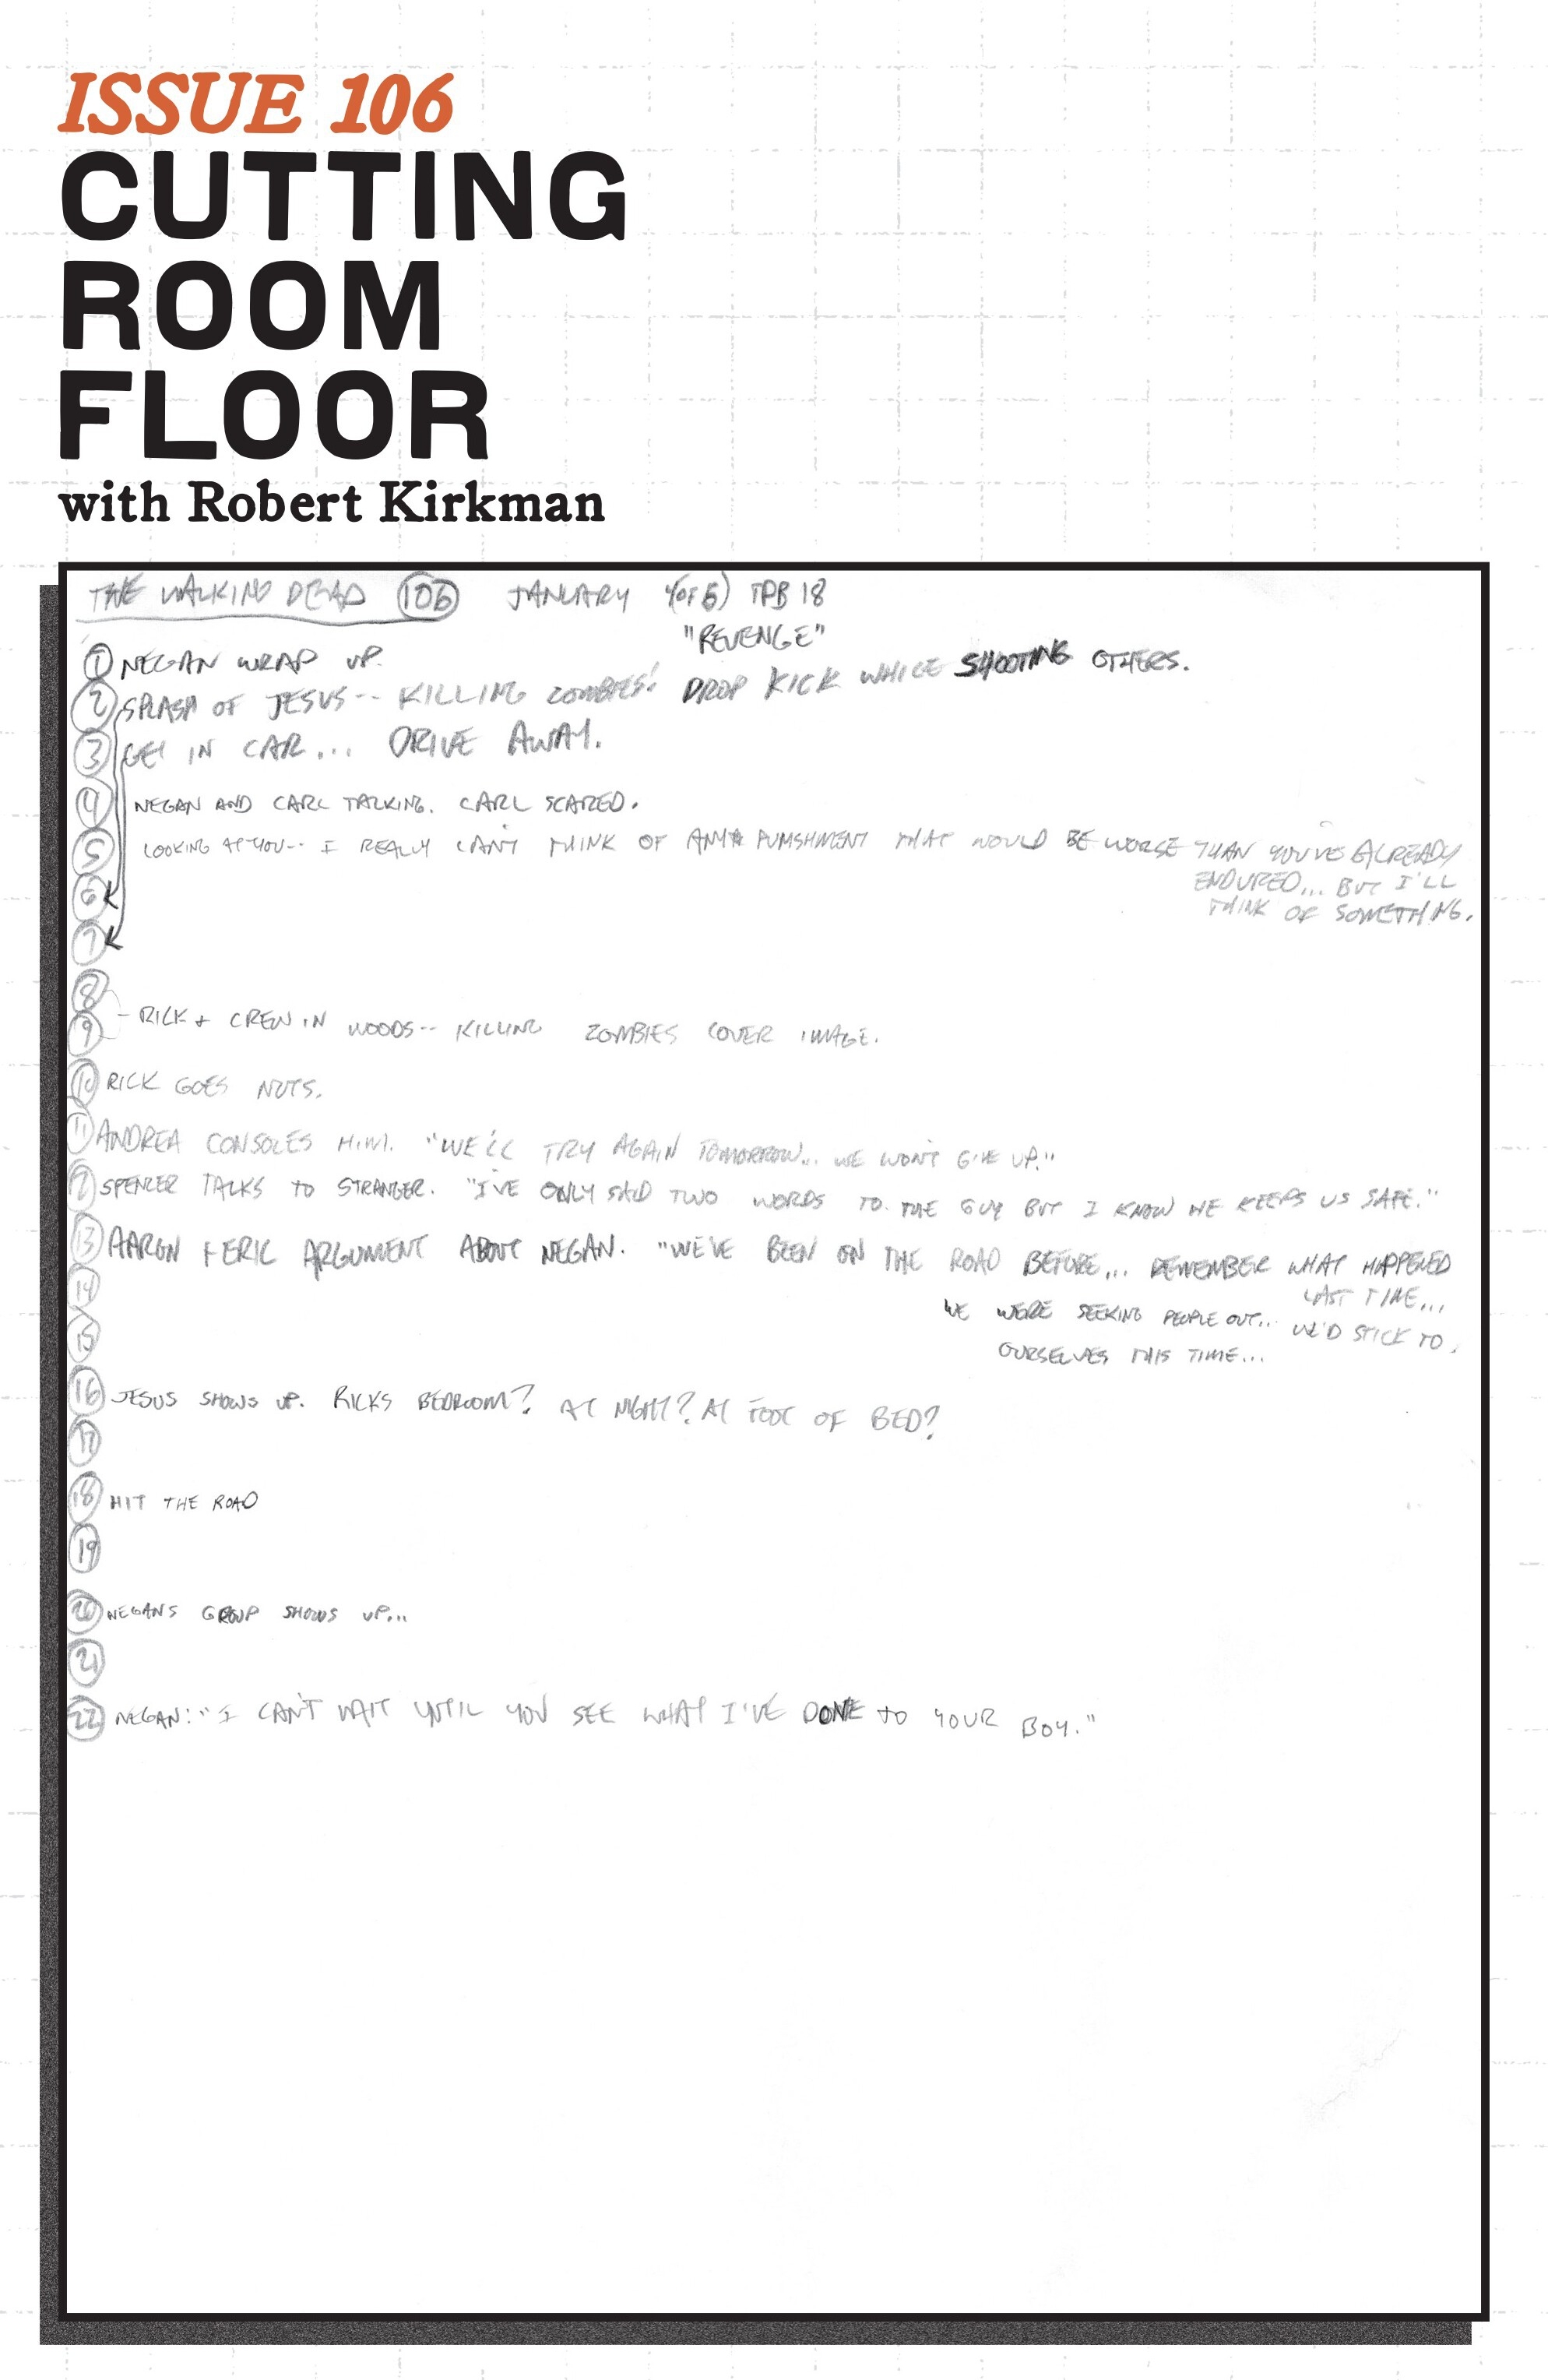 ISSUE 106
CUTTING
ROOM
FLOOR
with Robert Kirkman
THE WALKING DEAD 106 JANUARY 4 OF 6) TPB 18
"REVENGE"
1 NEGAN WRAP UP.
2 SPLASH OF JESUS-- KILLING ZOMBIES! DROP KICK WHILE SHOOTING OTHERS.
3 GET IN CAR... DRIVE AWAY.
4 NEGAN AND CARL TALKING. CARL SCARED.
5 LOOKING AT YOU-- I REALLY CAN'T THINK OF ANY PUNISHMENT THAT WOULD BE WORSE THAN YOU'VE ALREADY
ENDURED... BUT I'LL
6
THINK OF SOMETHING.
7
8
9 - RICK + CREW IN WOODS-- KILLING ZOMBIES COVER IMAGE.
10 RICK GOES NUTS.
11 ANDREA CONSOLES HIM. "WE'LL TRY AGAIN TOMORROW... WE WON'T GIVE UP."
12 SPENCER TALKS TO STRANGER. "I'VE ONLY SAID TWO WORDS TO THE GUY BUT I KNOW HE KEEPS US SAFE."
13 AARON + ERIC ARGUMENT ABOUT NEGAN. "WE'VE BEEN ON THE ROAD BEFORE... REMEMBER WHAT HAPPENED
LAST TIME...
14
WE WERE SEEKING PEOPLE OUT... WE'D STICK TO
15
OURSELVES THIS TIME...
16 JESUS SHOWS UP. RICKS BEDROOM? AT NIGHT? AT FOOT OF BED?
17
18 HIT THE ROAD
19
20 NEGANS GROUP SHOWS UP...
21
22 NEGAN: "I CAN'T WAIT UNTIL YOU SEE WHAT I'VE DONE TO YOUR BOY."